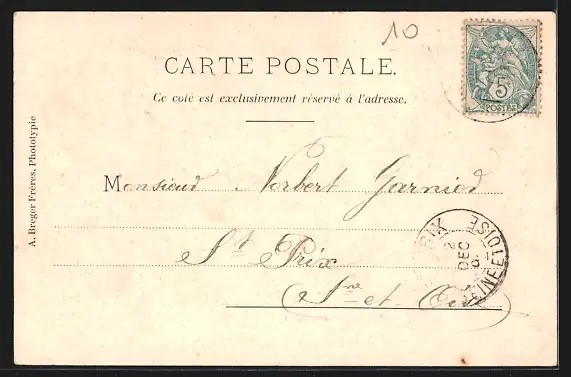 10
CARTE POSTALE.
Ce coté est exclusivement réservé à l'adresse.
5c
POSTES
A. Breger Frères, Phototypie
Monsieud Norbert Garnied
St Prix
(Sne et Oise)
RIX SEINE ET OISE
2
DEC